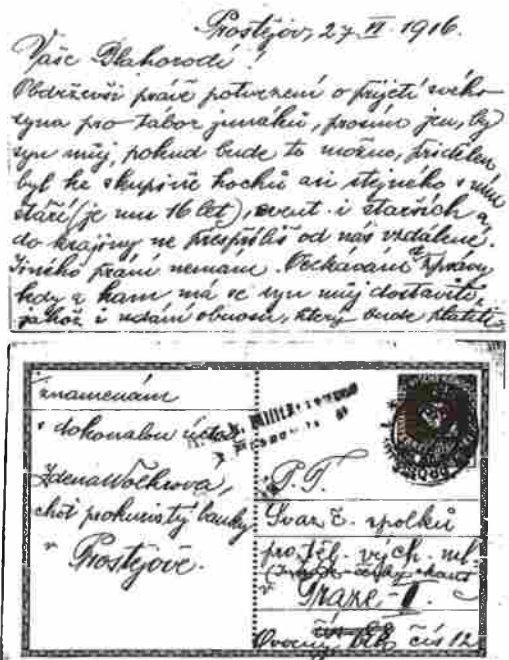 Prostějov, 27. VI. 1916.
Vaše Blahorodí!
Obdrževši právě potvrzení o přijetí svého
syna pro tábor junáků, prosím jen, by
syn můj, pokud bude to možno, přidělen
byl ke skupině hochů asi stejného s ním
stáří (je mu 16 let), event. i starších a
do krajiny ne přespříliš od nás vzdálené.
Jiného přání nemám. Očekávám zprávy
kdy a kam má se syn můj dostaviti,
jakož i udání obnosu, který bude platiti.
Znamenám
s dokonalou úctou
Zdena Wolkrova,
choť prokuristy banky
v Prostějově.
P. T.
Svaz č. spolků
pro těl. vých. ml.
v Praze, II.
čís 12